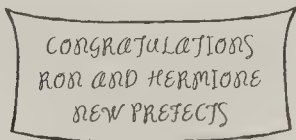 CONGRATULATIONS
RON AND HERMIONE
NEW PREFECTS